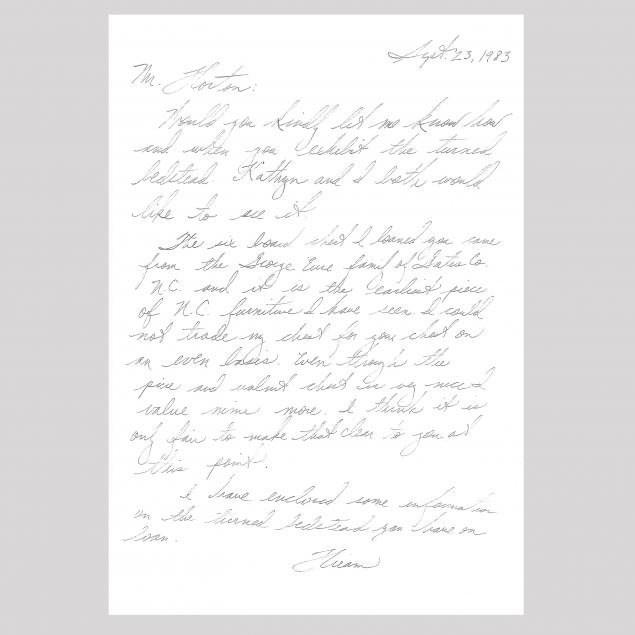 Sept. 23, 1983
Mr. Horton:
Would you kindly let me know how
and when you exhibit the turned
bedstead. Kathryn and I both would
like to see it.
The six board chest I loaned you came
from the George Eure famil of Gates Co
N.C. and it is the earliest piece
of N.C. furniture I have seen. I could
not trade my chest for your chest on
an even basis. Even though the
pine and walnut chest is very nice I
value mine more. I think it is
only fair to make that clear to you at
this point.
I have enclosed some information
on the turned bedstead you have on
loan.
Hiram